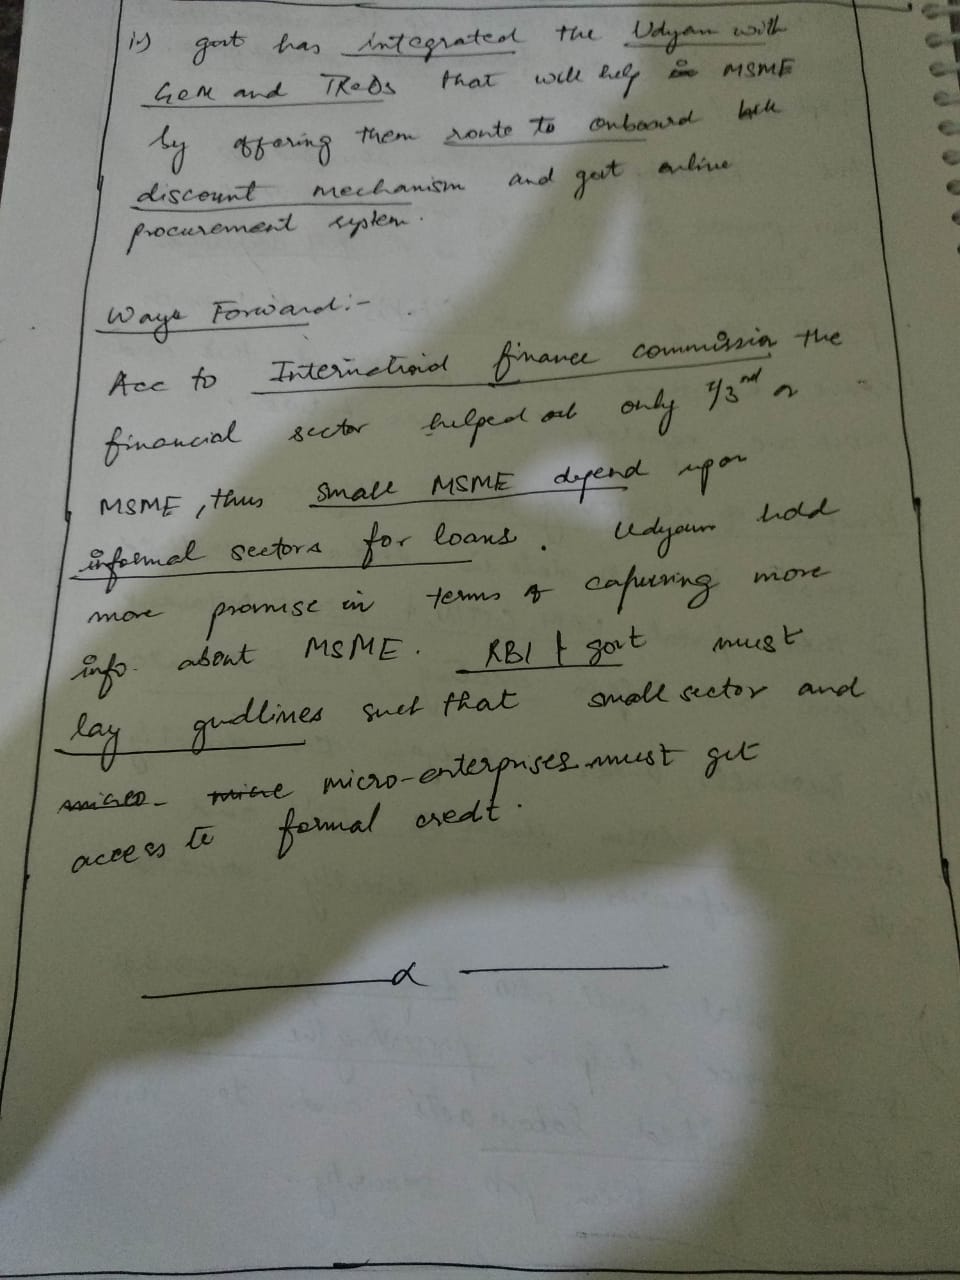 iv) govt has integrated the Udyam with
GeM and TReDs that will help in MSME
by offering them route to onboard bill
discount mechanism and govt online
procurement system.
Ways Forward:-
Acc to International finance commission the
financial sector helped out only 1/3rd of
MSME, thus small MSME depend upon
informal sectors for loans. Udyam hold
more promise in terms of capuring more
info. about MSME. RBI & govt must
lay gudlines such that small sector and
micro-enterprises must get
access to formal credt.